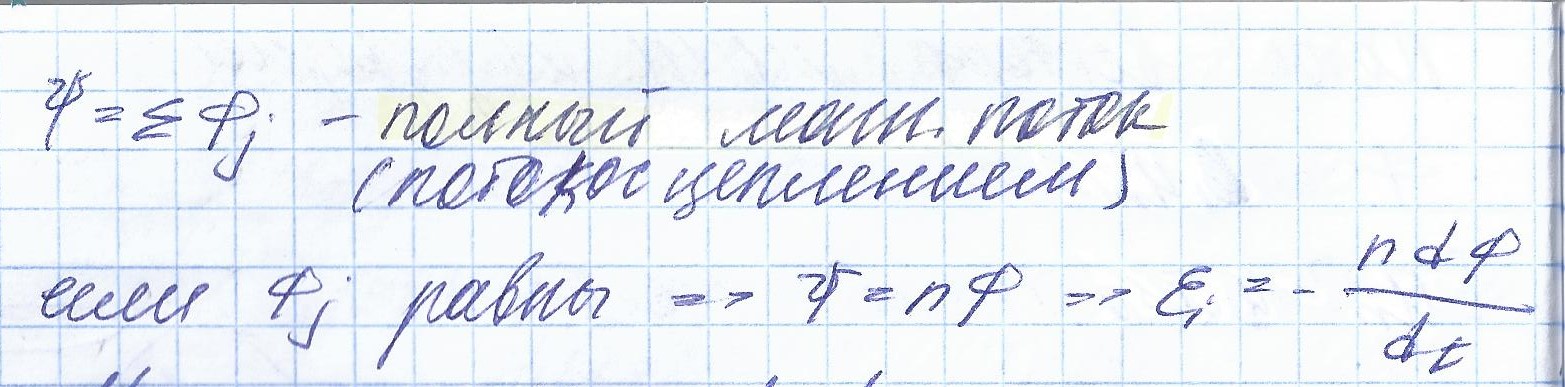 Ψ = Σ Φj - полный магн. поток
(потокосцеплением)
если Φj равны => Ψ = nΦ => Ɛi = - n dΦ / dt